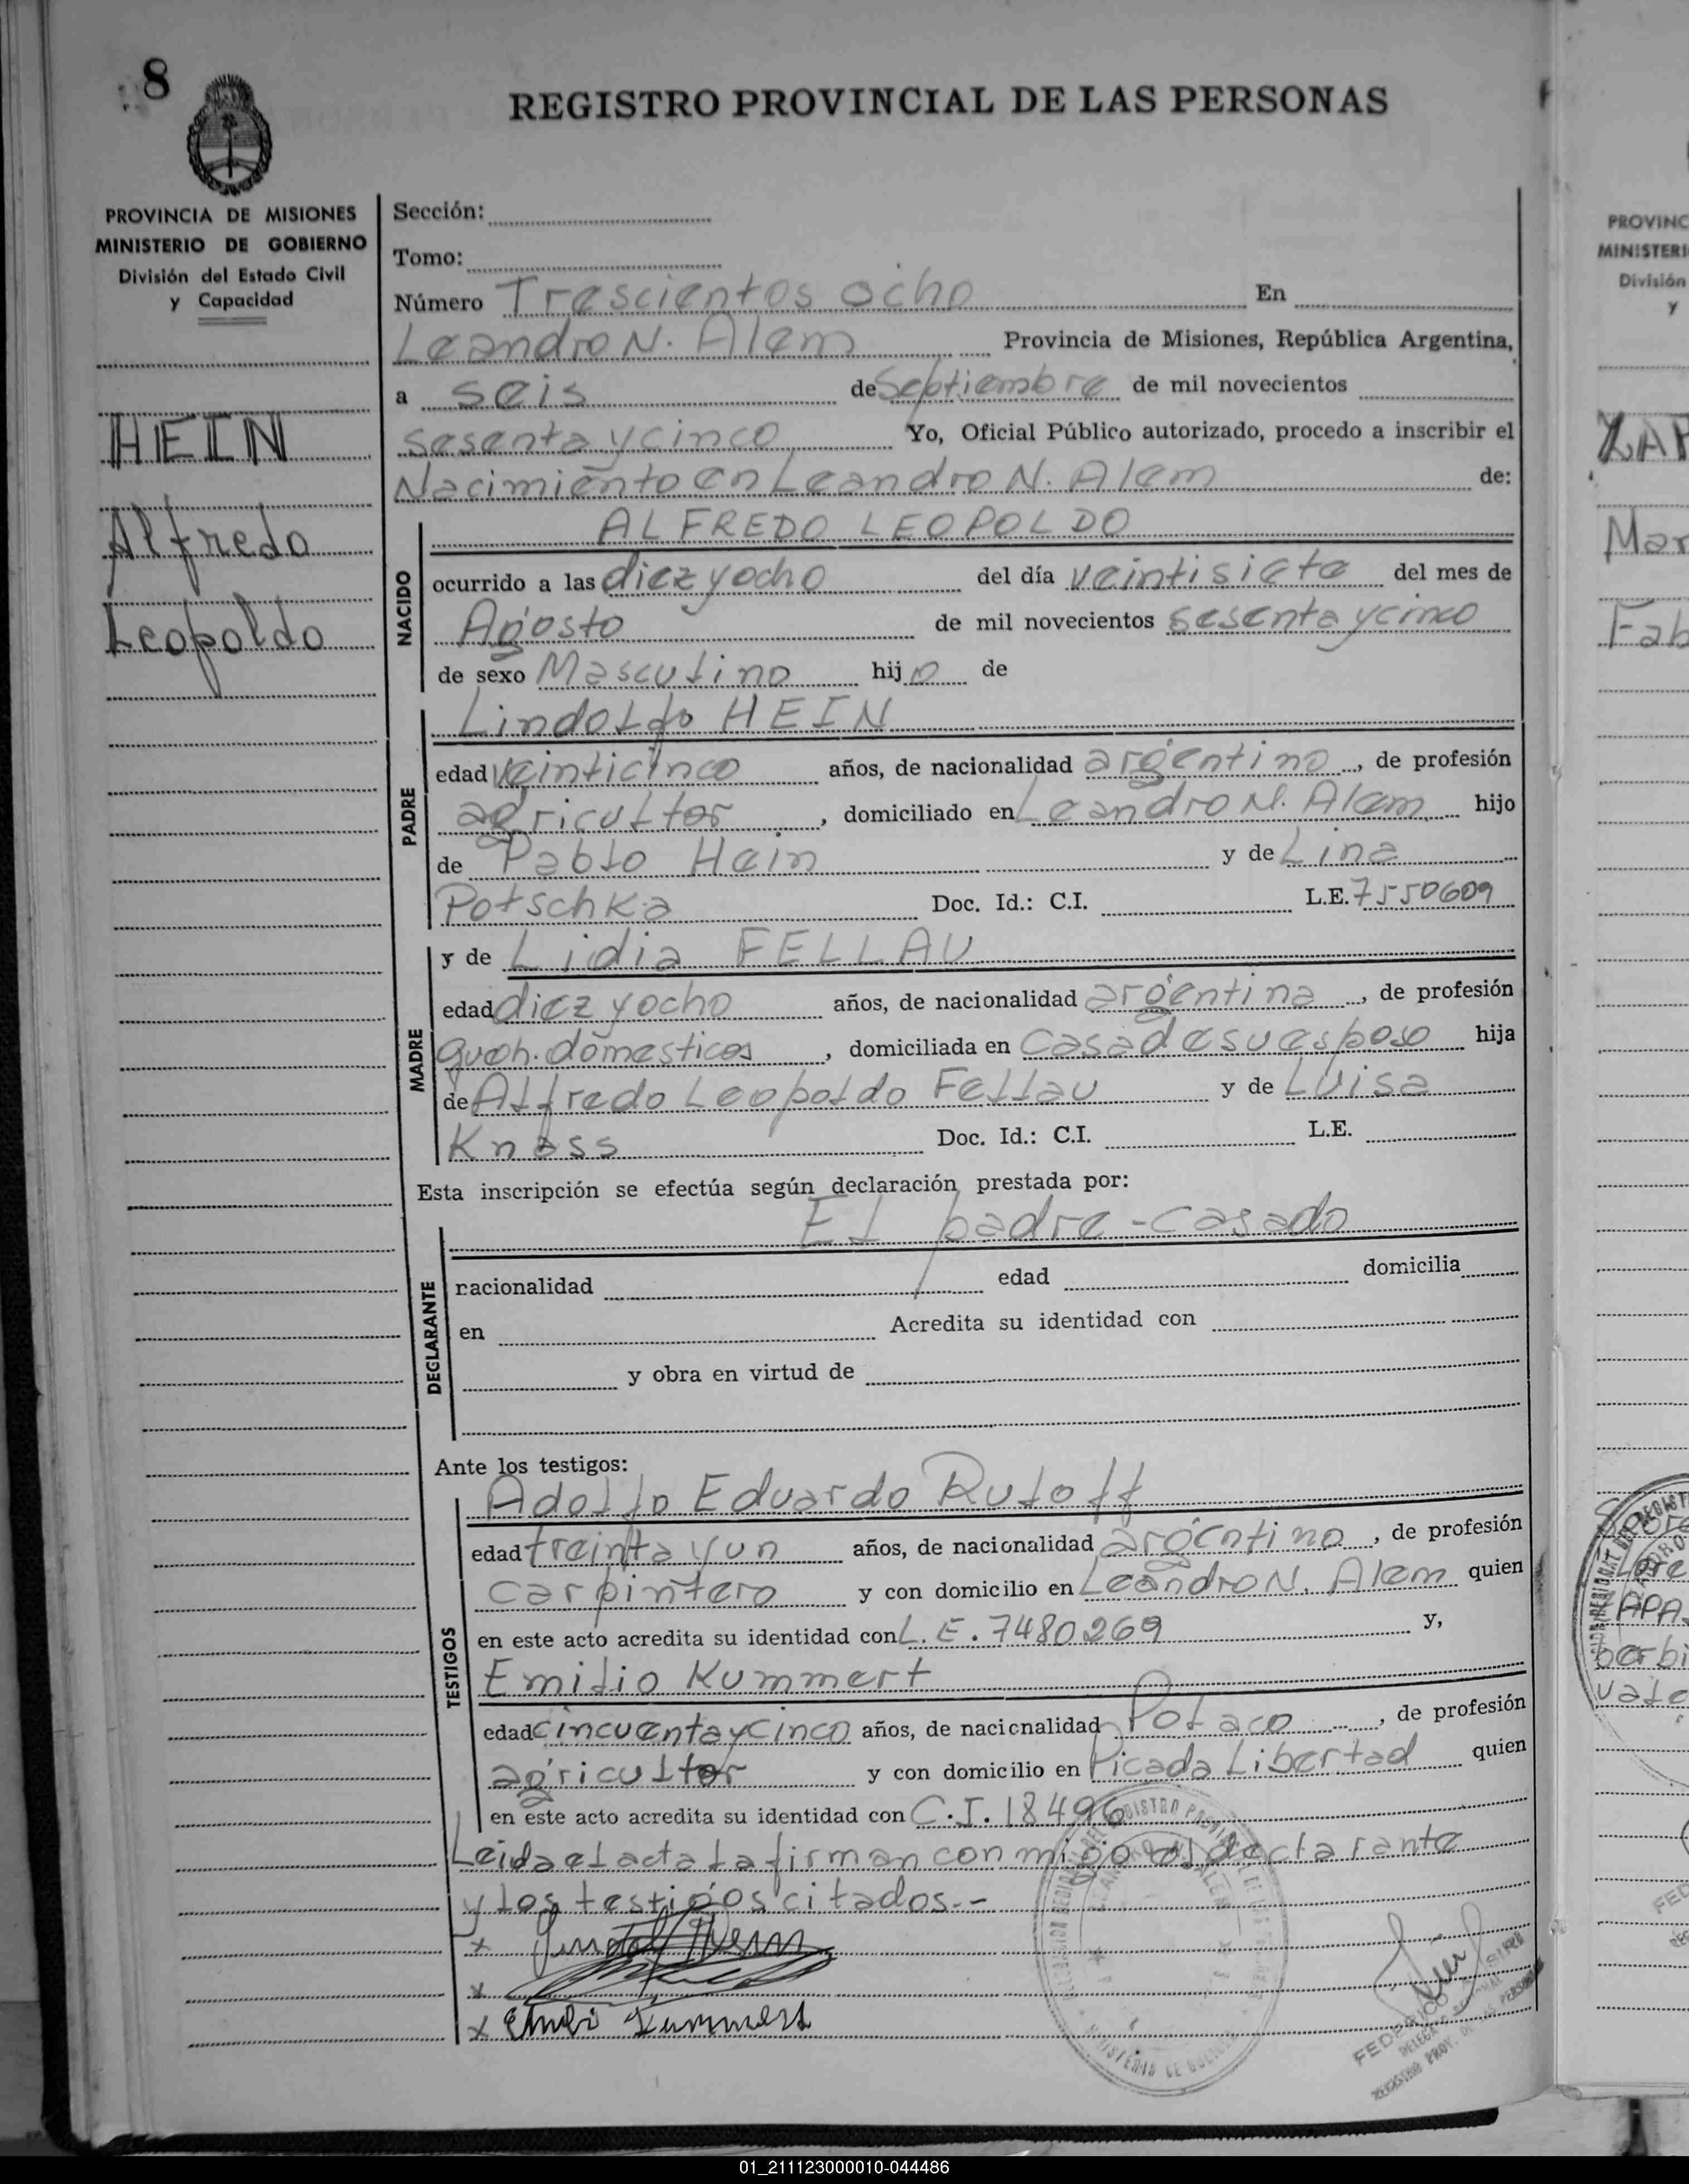 8
REGISTRO PROVINCIAL DE LAS PERSONAS
PROVINCIA DE MISIONES
MINISTERIO DE GOBIERNO
División del Estado Civil
y Capacidad
HEIN
Alfredo
Leopoldo
Sección:
Tomo:
Número Trescientos ocho En
Leandro N. Alem Provincia de Misiones, República Argentina,
a seis de Septiembre de mil novecientos
sesenta y cinco Yo, Oficial Público autorizado, procedo a inscribir el
Nacimiento en Leandro N. Alem de:
NACIDO
ALFREDO LEOPOLDO
ocurrido a las diez y ocho del día veintisiete del mes de
Agosto de mil novecientos sesenta y cinco
de sexo Masculino hijo de
PADRE
Lindolfo HEIN
edad veinticinco años, de nacionalidad argentino, de profesión
agricultor, domiciliado en Leandro N. Alem hijo
de Pablo Hein y de Lina
Potschka Doc. Id.: C.I. L.E. 7550609
MADRE
y de Lidia FELLAU
edad diez y ocho años, de nacionalidad argentina, de profesión
queh. domesticos, domiciliada en casa de su esposo hija
de Alfredo Leopoldo Fellau y de Luisa
Knass Doc. Id.: C.I. L.E.
Esta inscripción se efectúa según declaración prestada por:
DECLARANTE
El padre - casado
nacionalidad edad domicilia
en Acredita su identidad con
y obra en virtud de
Ante los testigos:
TESTIGOS
Adolfo Eduardo Ruloff
edad treinta y un años, de nacionalidad argentino, de profesión
carpintero y con domicilio en Leandro N. Alem quien
en este acto acredita su identidad con L.E. 7480269 y,
Emilio Kummert
edad cincuenta y cinco años, de nacionalidad Polaco, de profesión
agricultor y con domicilio en Picada Libertad quien
en este acto acredita su identidad con C.I. 18496
Leida el acta la firman conmigo el declarante
y los testigos citados.-
x
x
x Emilio Kummert
FEDERICO
PROVINC
MINISTERI
División
y
ZAP
Mar
Fab
01_211123000010-044486